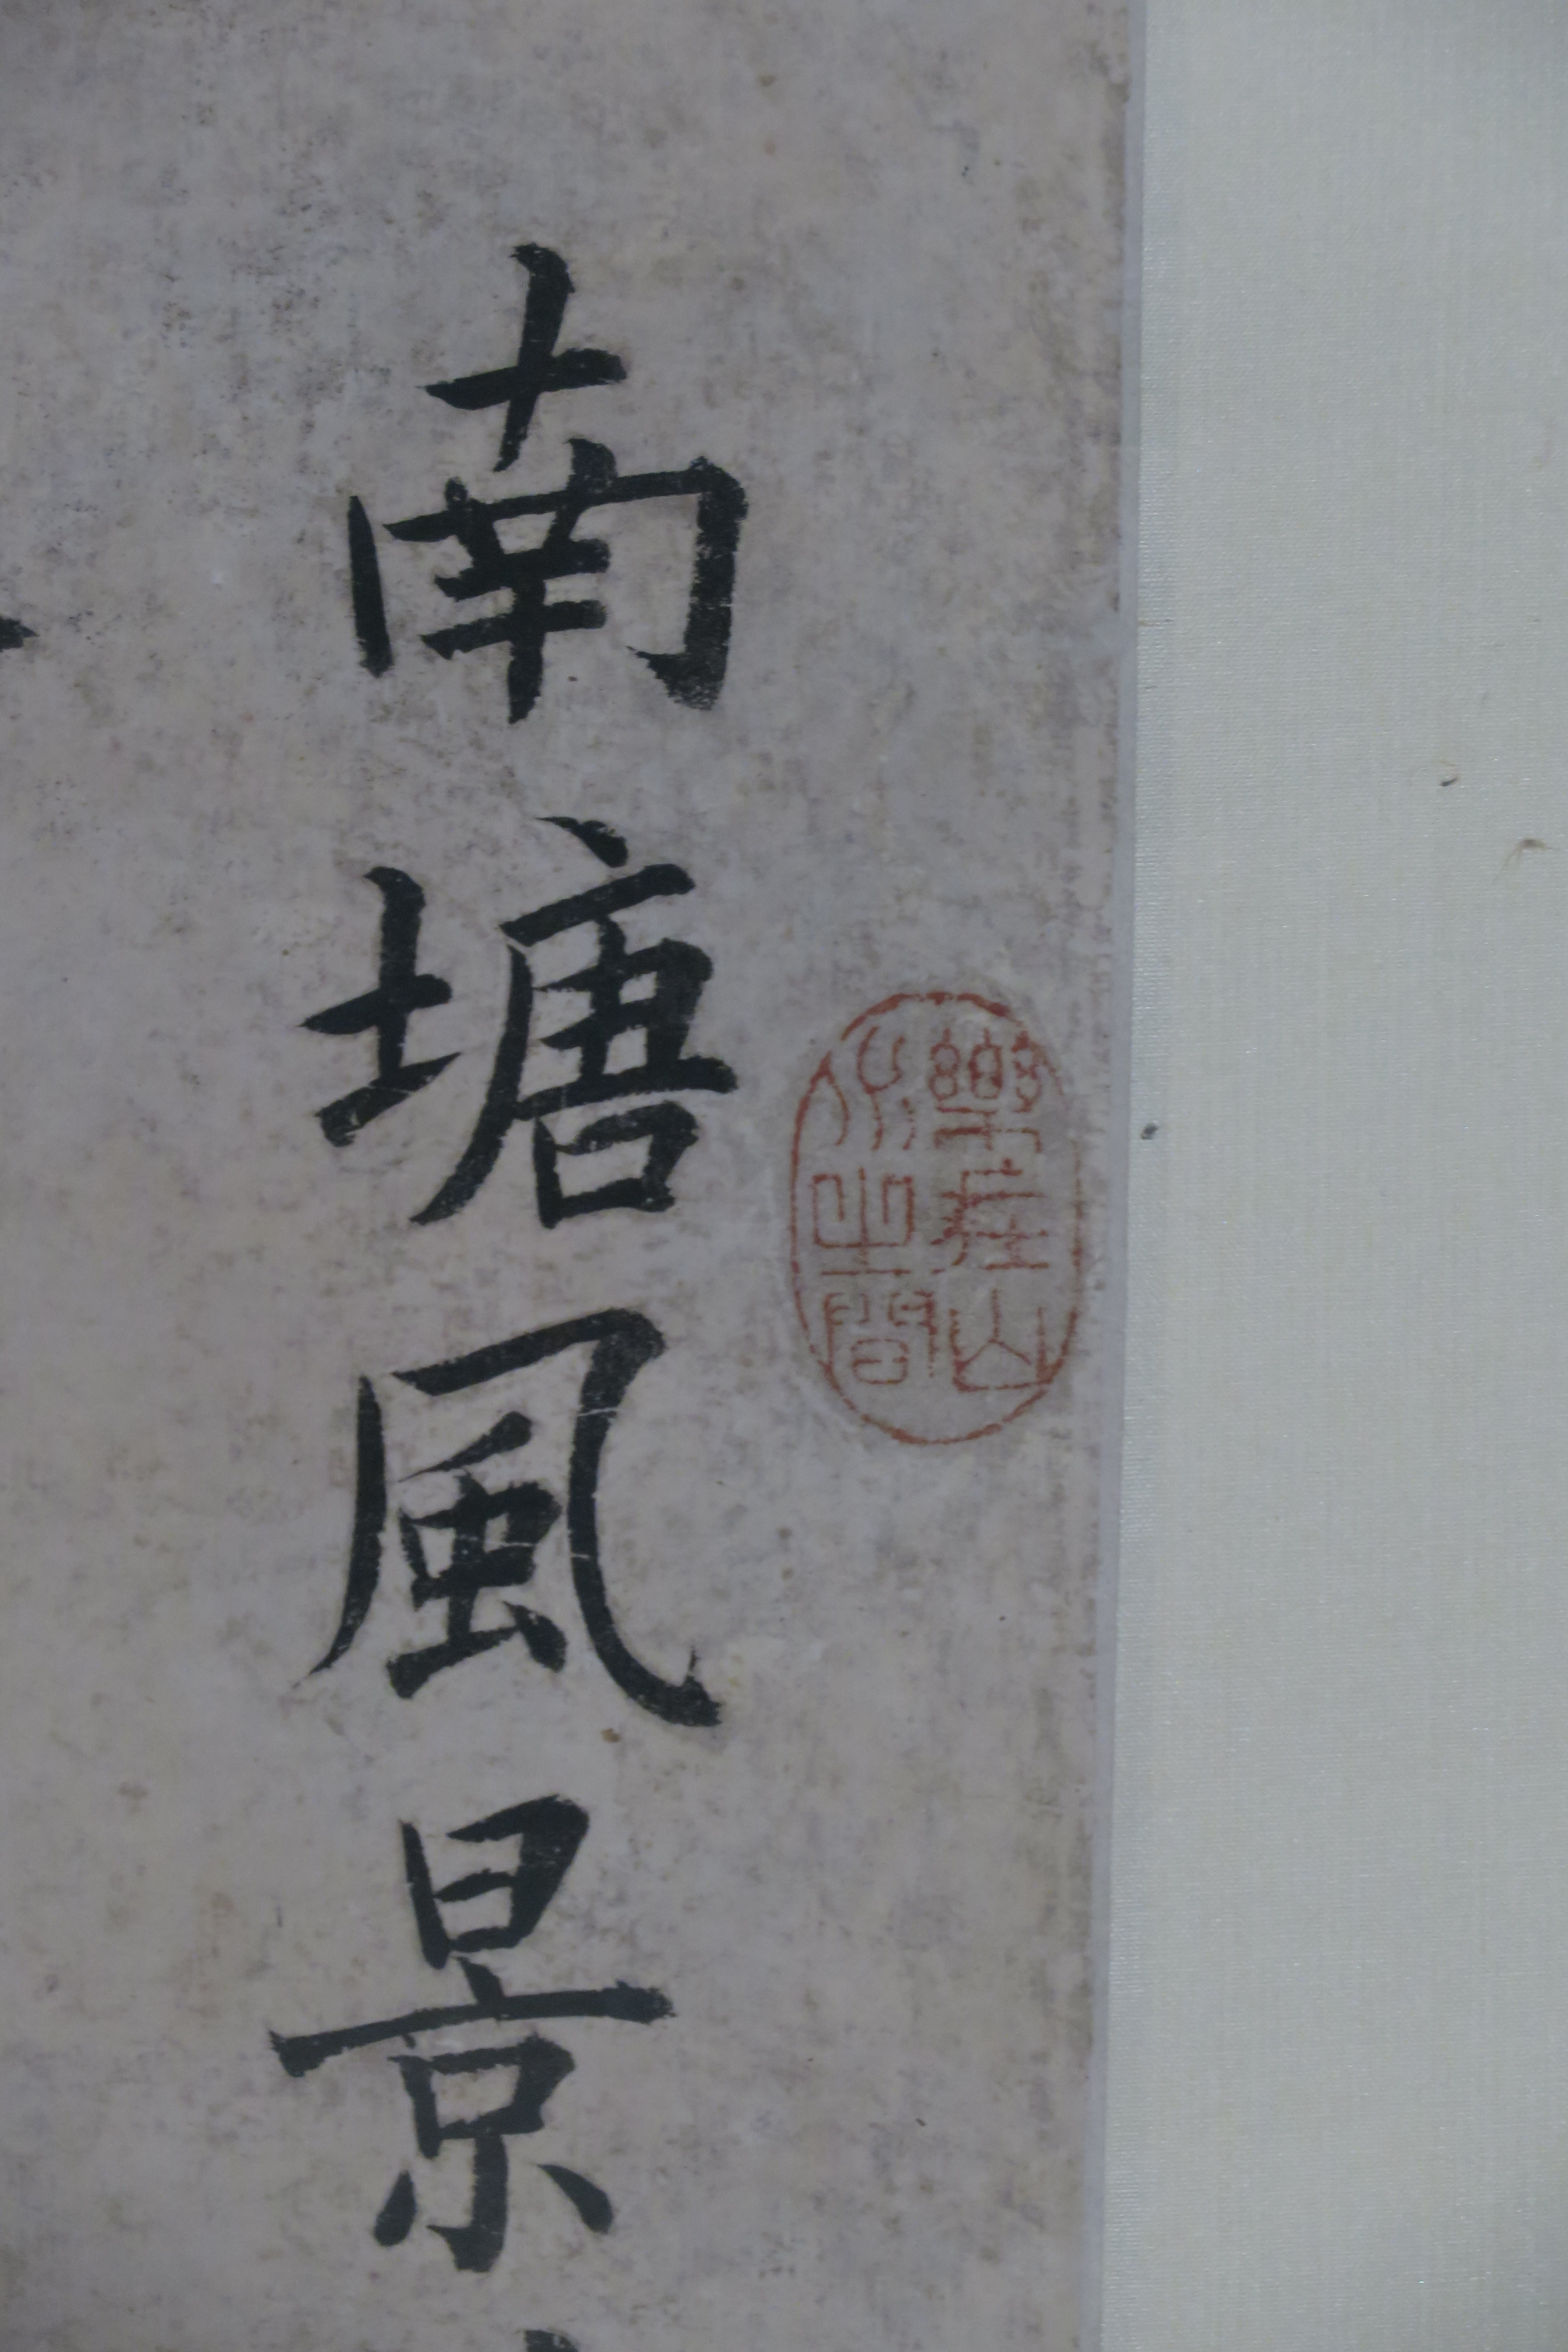 樂在山
水之間
南塘風景